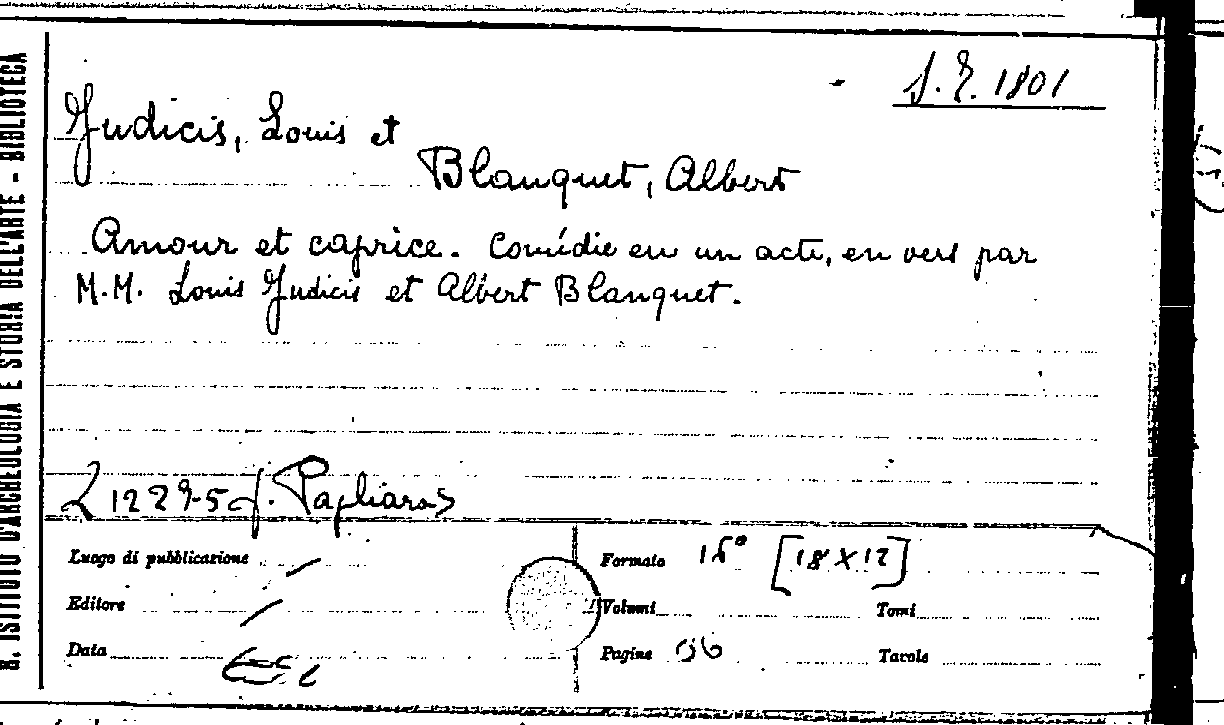 R. ISTITUTO D'ARCHEOLOGIA E STORIA DELL'ARTE - BIBLIOTECA
1801
Judicis, Louis et
Blanquet, Albert
Amour et caprice. Comédie en un acte, en vers par
M.M. Louis Judicis et Albert Blanquet.
Pagliara
Luogo di pubblicazione
Editore
Data
Formato 16° [18 X 12]
Volumi Tomi
Pagine 36 Tavole